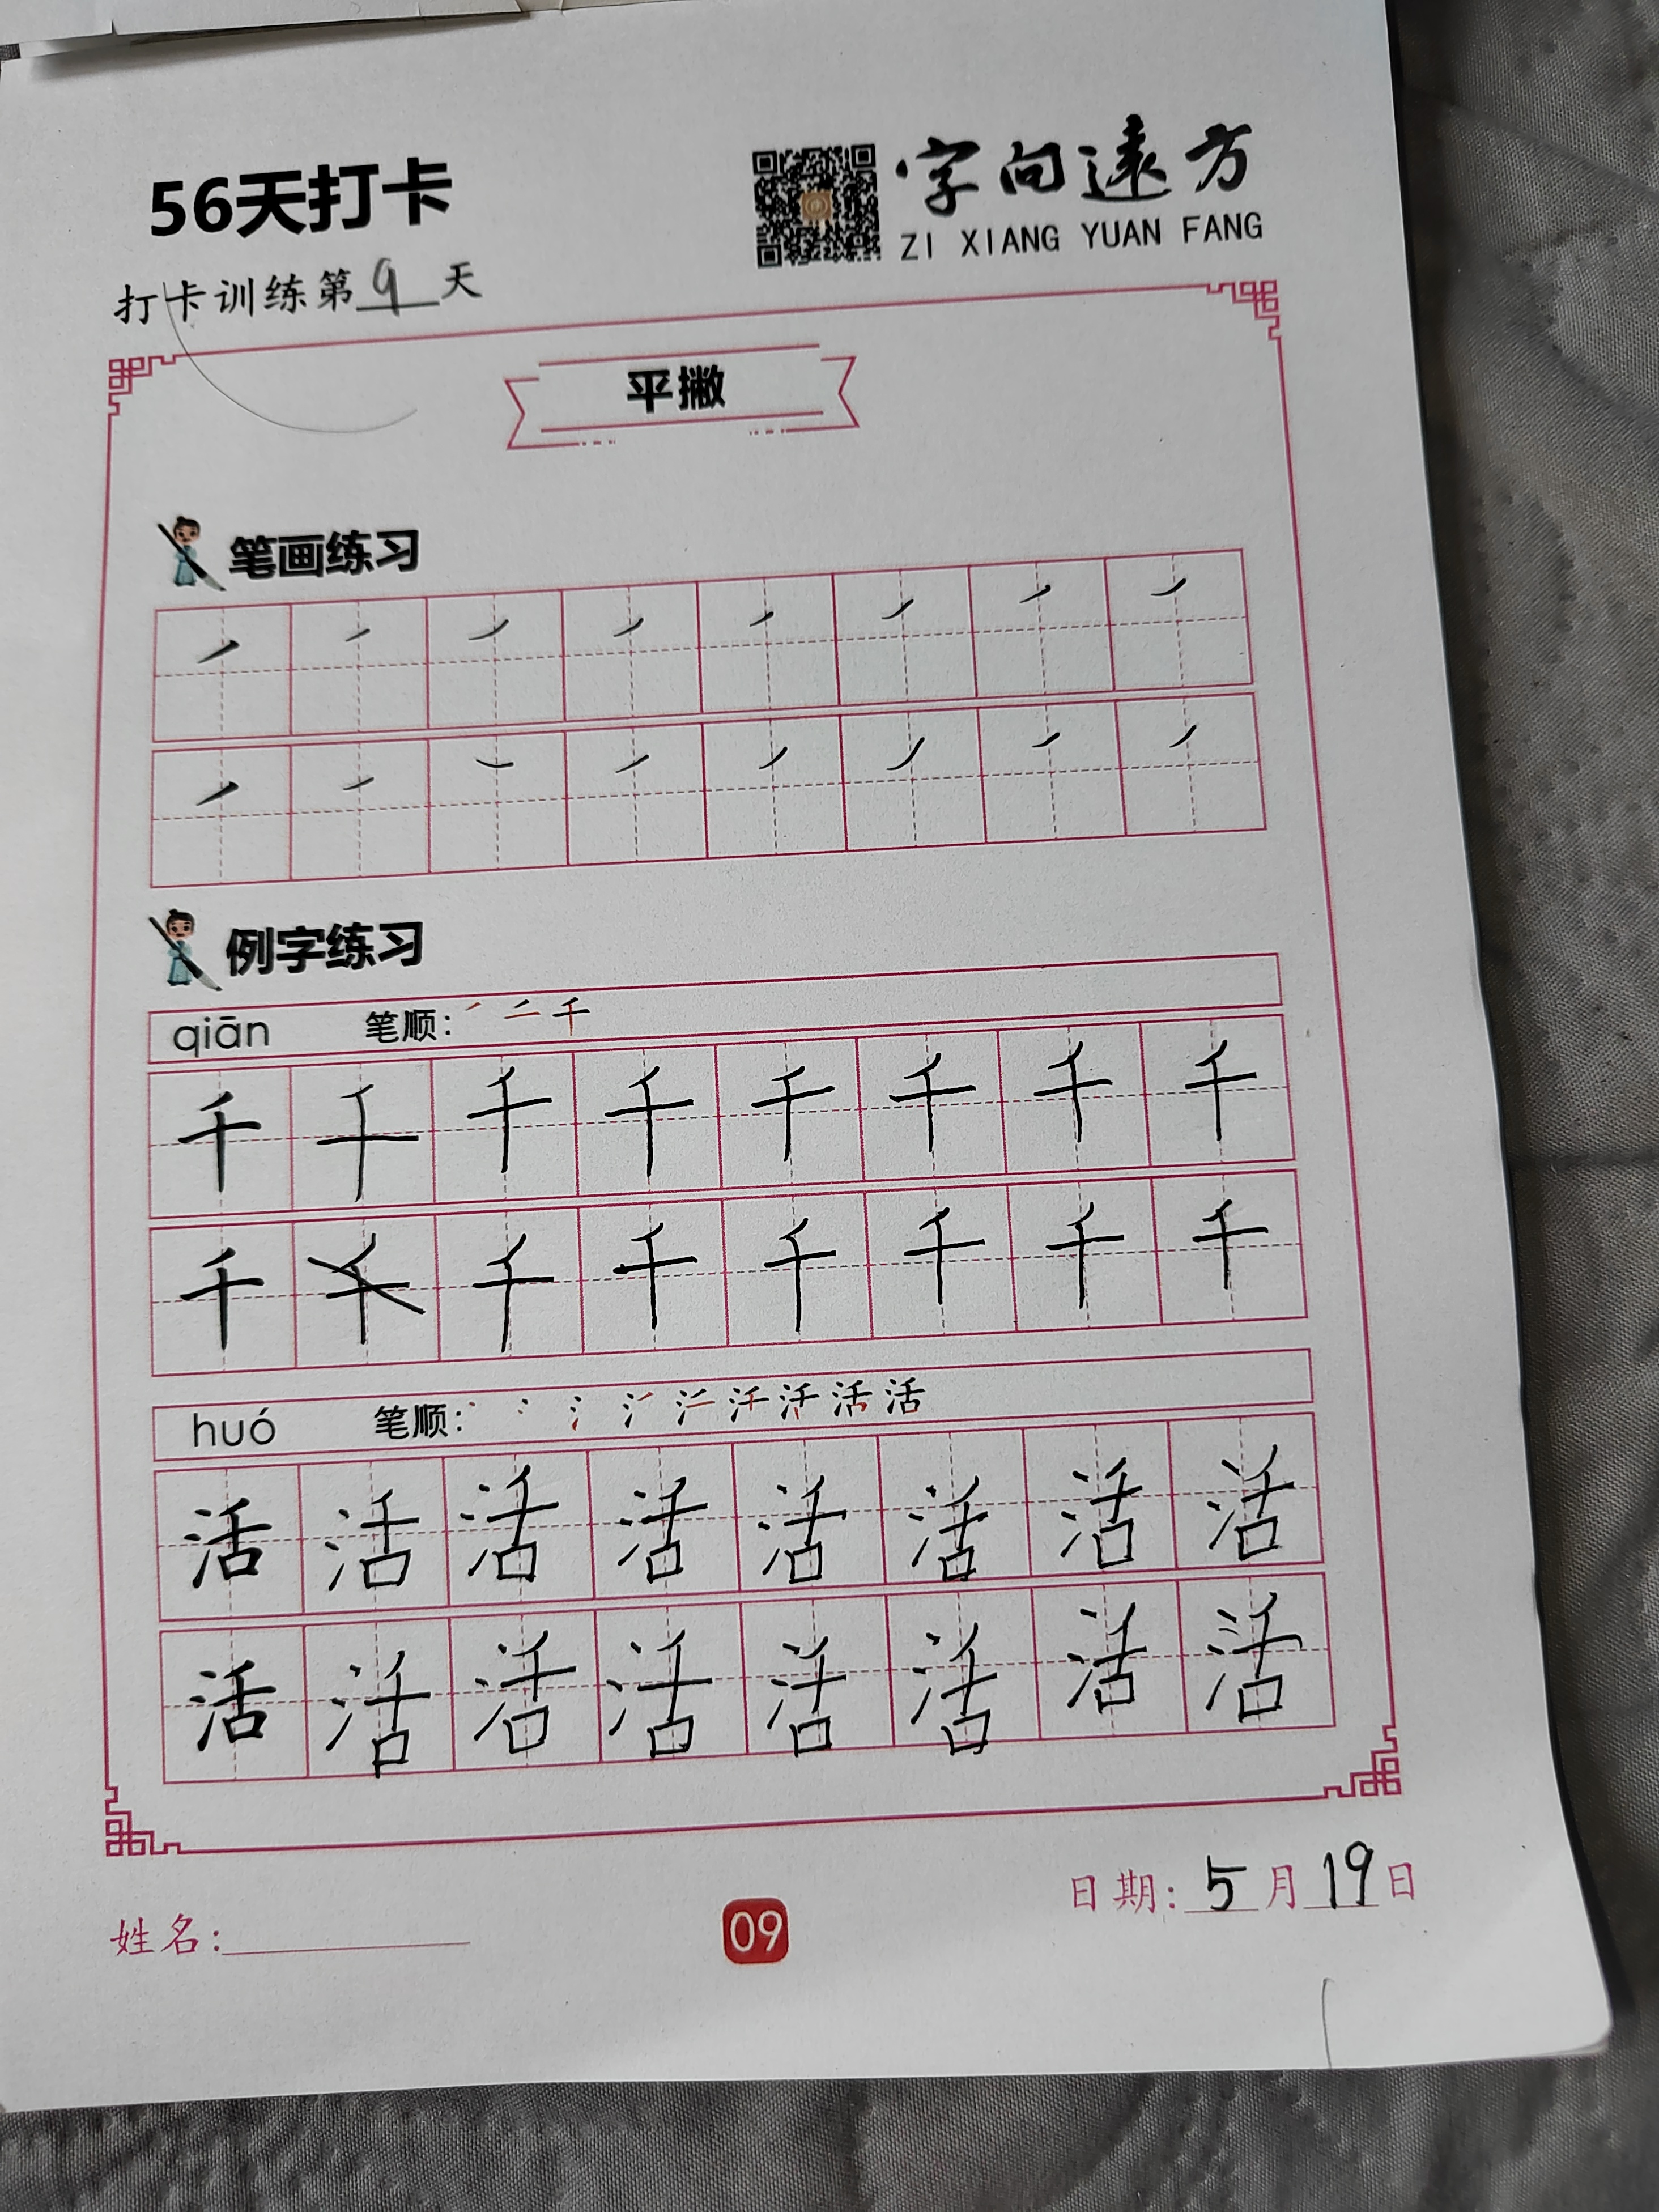 56天打卡
字向遠方
ZI XIANG YUAN FANG
打卡训练第9天
平撇
笔画练习
例字练习
qiān 笔顺: 千
千 千 千 千 千 千 千 千
千 千 千 千 千 千 千 千
huó 笔顺: 活 活
活 活 活 活 活 活 活 活
活 活 活 活 活 活 活 活
日期: 5月19日
姓名:
09